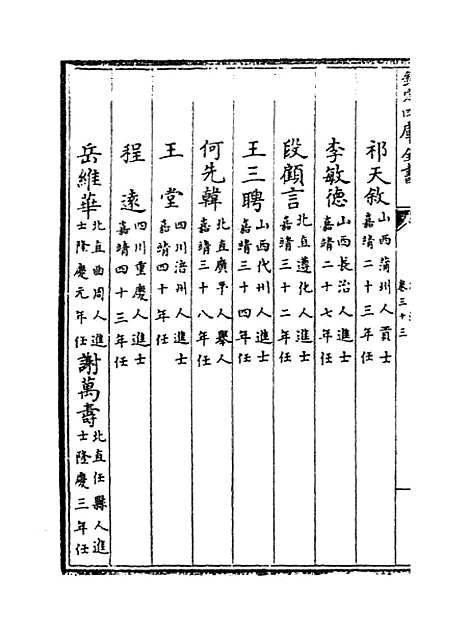 欽定四庫全書
卷三十三
祁天敘 山西蒲州人貢士嘉靖二十三年任
李敏德 山西長治人進士嘉靖二十七年任
段顧言 北直遵化人進士嘉靖三十二年任
王三聘 山西代州人進士嘉靖三十四年任
何先韓 北直廣平人舉人嘉靖三十八年任
王堂 四川涪州人進士嘉靖四十年任
程遠 四川重慶人進士嘉靖四十三年任
岳維華 北直曲周人進士隆慶元年任 謝萬壽 北直任縣人進士隆慶三年任